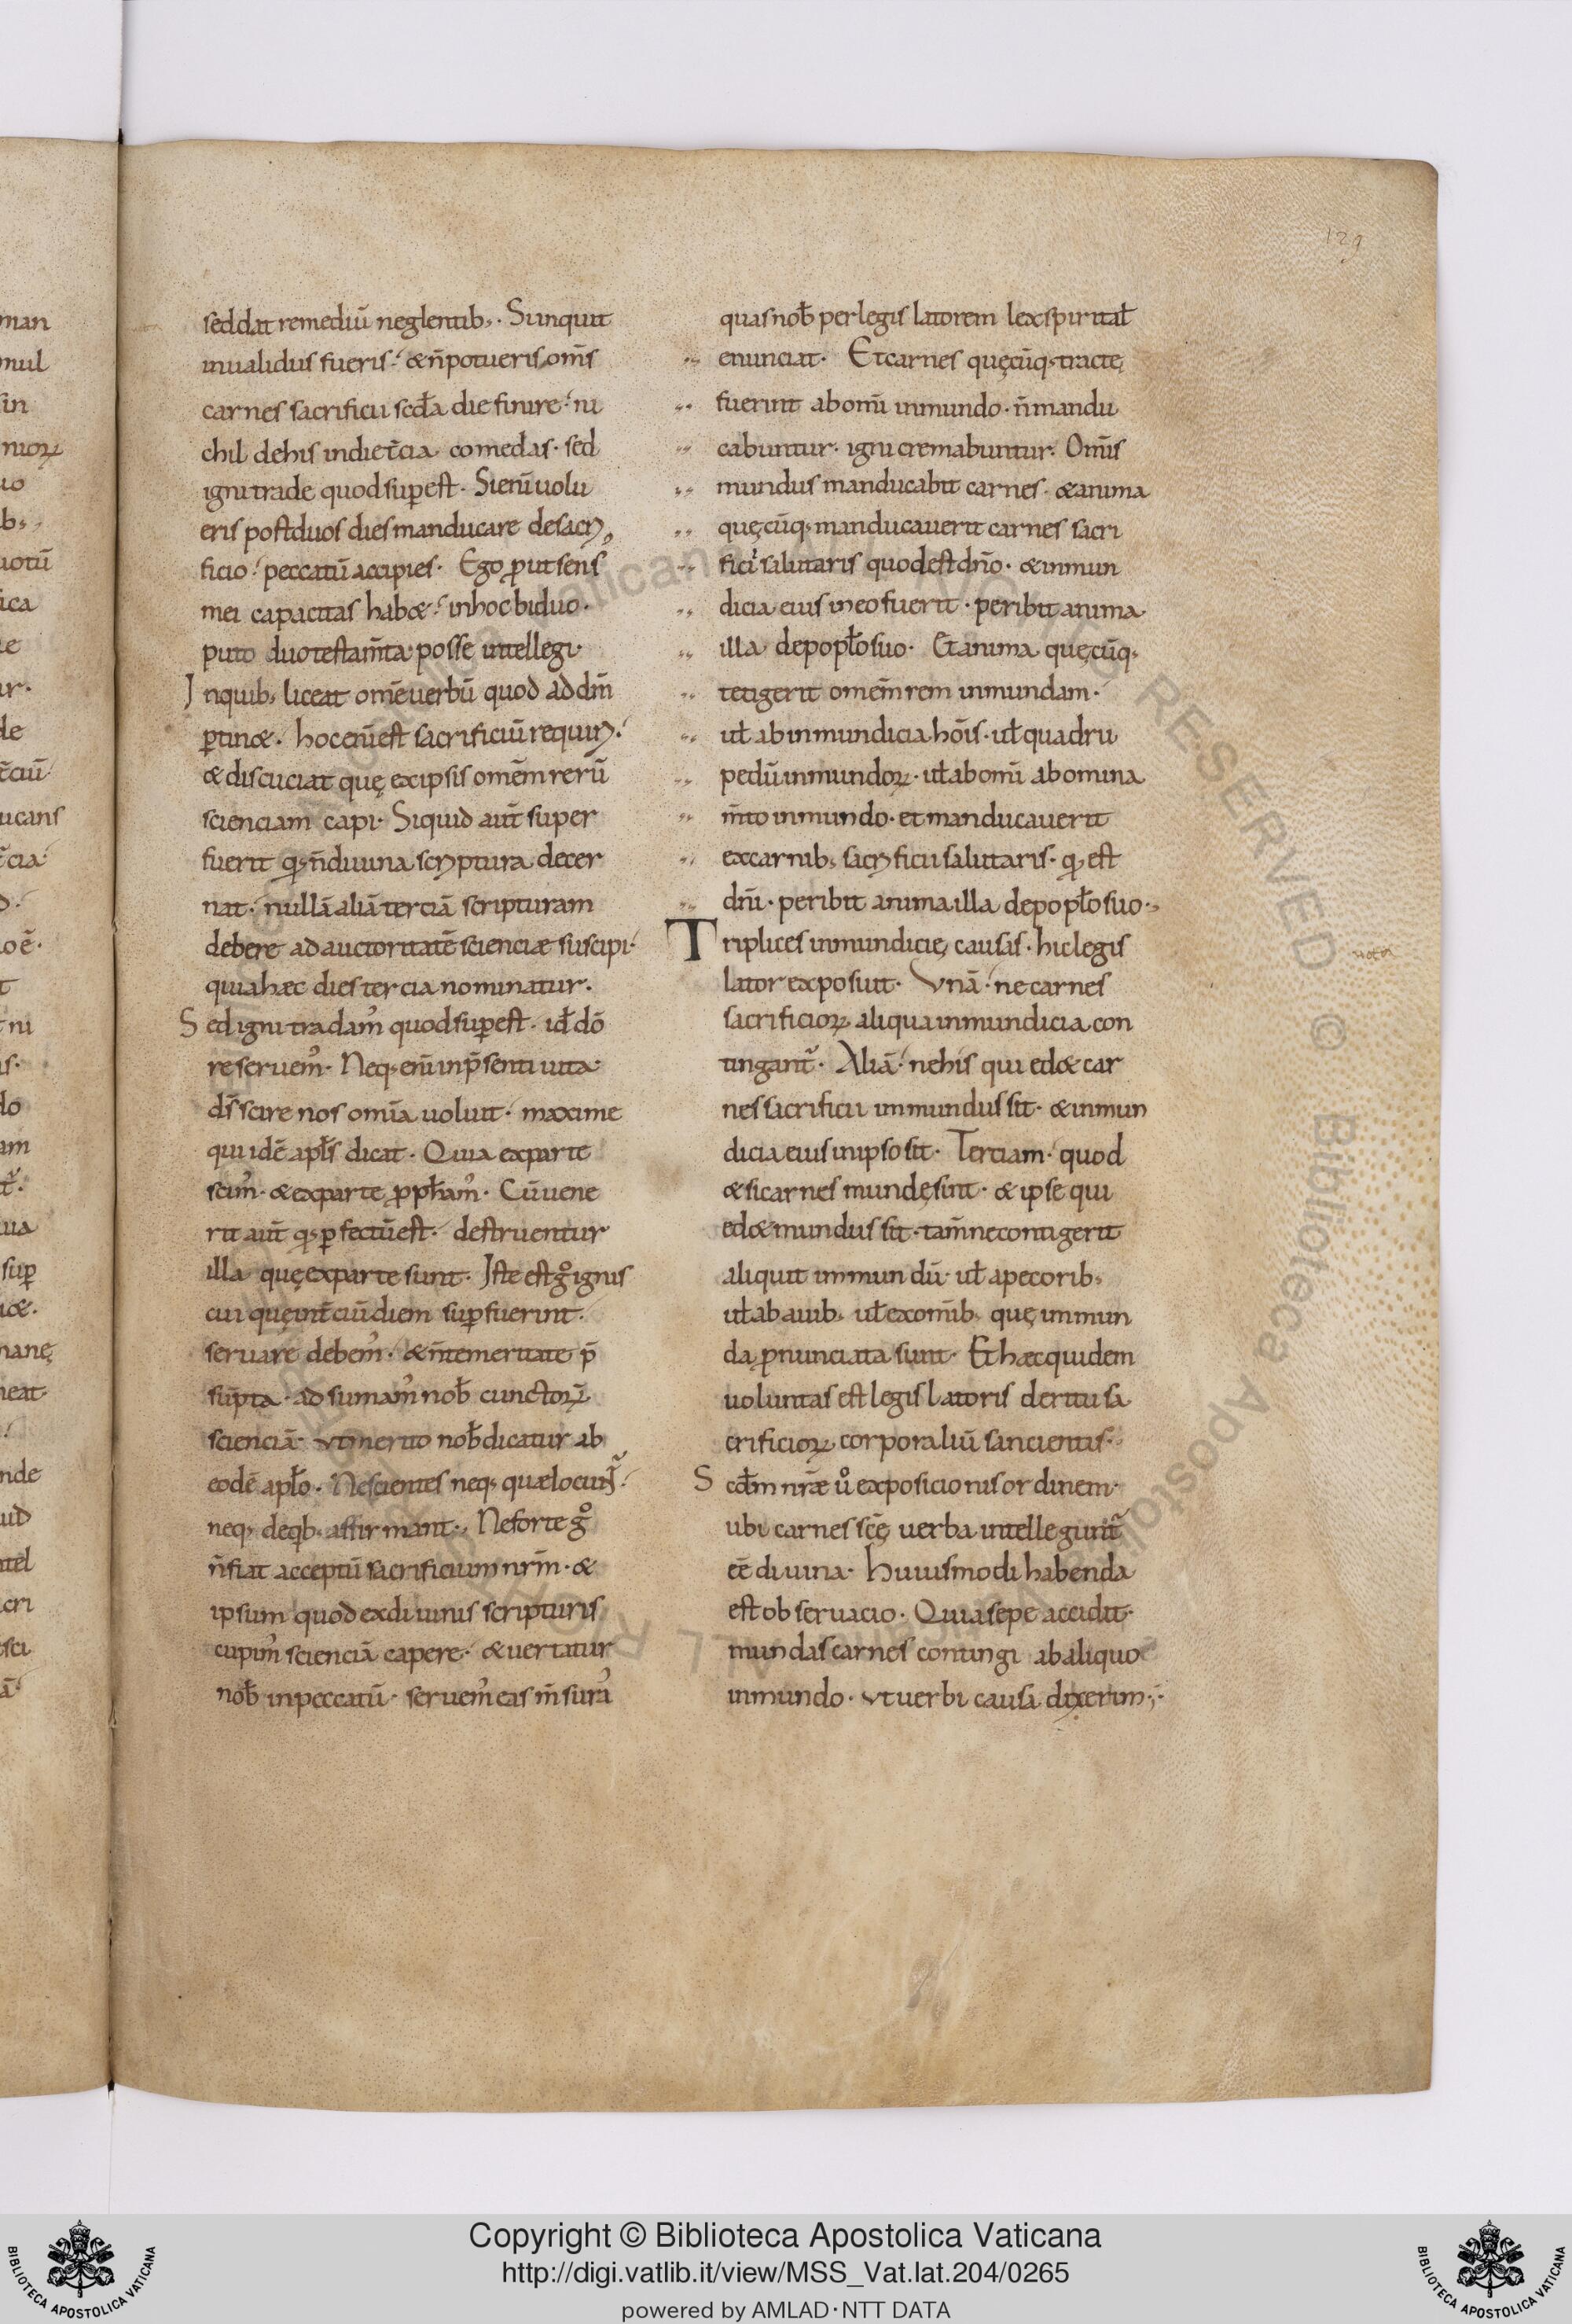 129
sed dat remediū neglentib; · Si inquit
inualidus fueris · & n̄ potueris om̄s
carnes sacrificii scd̄a die finire · ni
chil de his in die t̄cia comedas · sed
igni trade quod sup̱est · Si eni̅ uolu
eris post duos dies manducare de sacri
ficio · peccatū accipies · Ego ꝓut sens᾽
mei capacitas hab& · in hoc biduo ·
puto duo testam̄ta posse intellegi ·
Inquib; liceat om̄e uerbū quod ad dm̄
ꝑtin& · hoc eni̅ est sacrificiū requiri ·
& discuciat quę ex ipsis om̄em rerū
scienciam capi · Siquid aut̄ super
fuerit qđ n̄ diuina scriptura decer
nat · nullā aliā terciā scripturam
debere ad auctoritatē scienciæ suscipi ·
quia hæc dies tercia nominatur ·
Sed igni tradam᾽ quod suꝑest · id̄ dō
reseruem᾽ · Neq; eni̅ in p̄senti uita
ds̄ scire nos om̄ia uoluit · maxime
qui idē apl̄s dicat · Quia ex parte
scim᾽ · & ex parte ꝓph̄am᾽ · Cū uene
rit aut̄ qđ ꝑfectū est · destruentur
illa quę ex parte sunt · Iste est g̊ ignis
cui quę int̄ciū diem suꝑfuerint ·
seruare debem᾽ · & n̄ temeritate p̄
sūpta · adsumam᾽ nob̄ cunctoꝝ
scienciā · ut merito nob̄ dicatur ab
eodē apl̄o · Nescientes neq; quæ locunt᷑ ·
neq; de qb; affirmant · Ne forte g̊
n̄ fiat acceptū sacrificium nrm̄ · &
ipsum quod ex diuinis scripturis
cupim᾽ scienciā capere · & uertatur
nob̄ in peccatū · seruem᾽ eas m̄surā
quas nob̄ per legis latorem lex spirital̄
enunciat · Et carnes quęcūq; tractę
fuerint ab omi̅ inmundo · n̄ mandu
cabuntur · igni cremabuntur · Om̄is
mundus manducabit carnes · & anima
quęcūq; manducauerit carnes sacri
ficii salutaris quod est dn̄o · & inmun
dicia eius in eo fuerit · peribit anima
illa de popl̄o suo · Et anima quęcūq;
tetigerit omem̄ rem inmundam ·
ul̄ ab inmundicia hōis · ul̄ quadru
pedū inmundoꝝ · ul̄ ab omi̅ abomina
m̄to inmundo · et manducauerit
ex carnib; sacrificii salutaris · qđ est
dn̄i · peribit anima illa de popl̄o suo ·
Triplices inmundicię causas · hic legis
lator exposuit · Vnā · ne carnes
sacrificioꝝ aliqua inmundicia con
tingant᷑ · Aliā · ne his qui ed& car
nes sacrificii immundus sit · & inmun
dicia eius in ipso sit · Terciam · quod
& si carnes mundę sint · & ipse qui
ed& mundus sit · tam̄ ne contigerit
aliquit immundū · ul̄ a pecorib;
ul̄ ab auib; ul̄ ex omi̅b; quę immun
da ꝓnunciata sunt · Et hæc quidem
uoluntas est legis latoris de ritu sa
crificioꝝ corporaliū sancientis ·
Scd̄m nr̄æ ů exposicionis ordinem ·
ubi carnes scę̄ uerba intellegunt᷑
eē diuina · Huiusmodi habenda
est obseruacio · Quia sepe accidit ·
mundas carnes contingi ab aliquo
inmundo · ut uerbi causa dixerim ·
nota
Copyright © Biblioteca Apostolica Vaticana
http://digi.vatlib.it/view/MSS_Vat.lat.204/0265
powered by AMLAD·NTT DATA
BIBLIOTECA APOSTOLICA VATICANA
BIBLIOTECA APOSTOLICA VATICANA